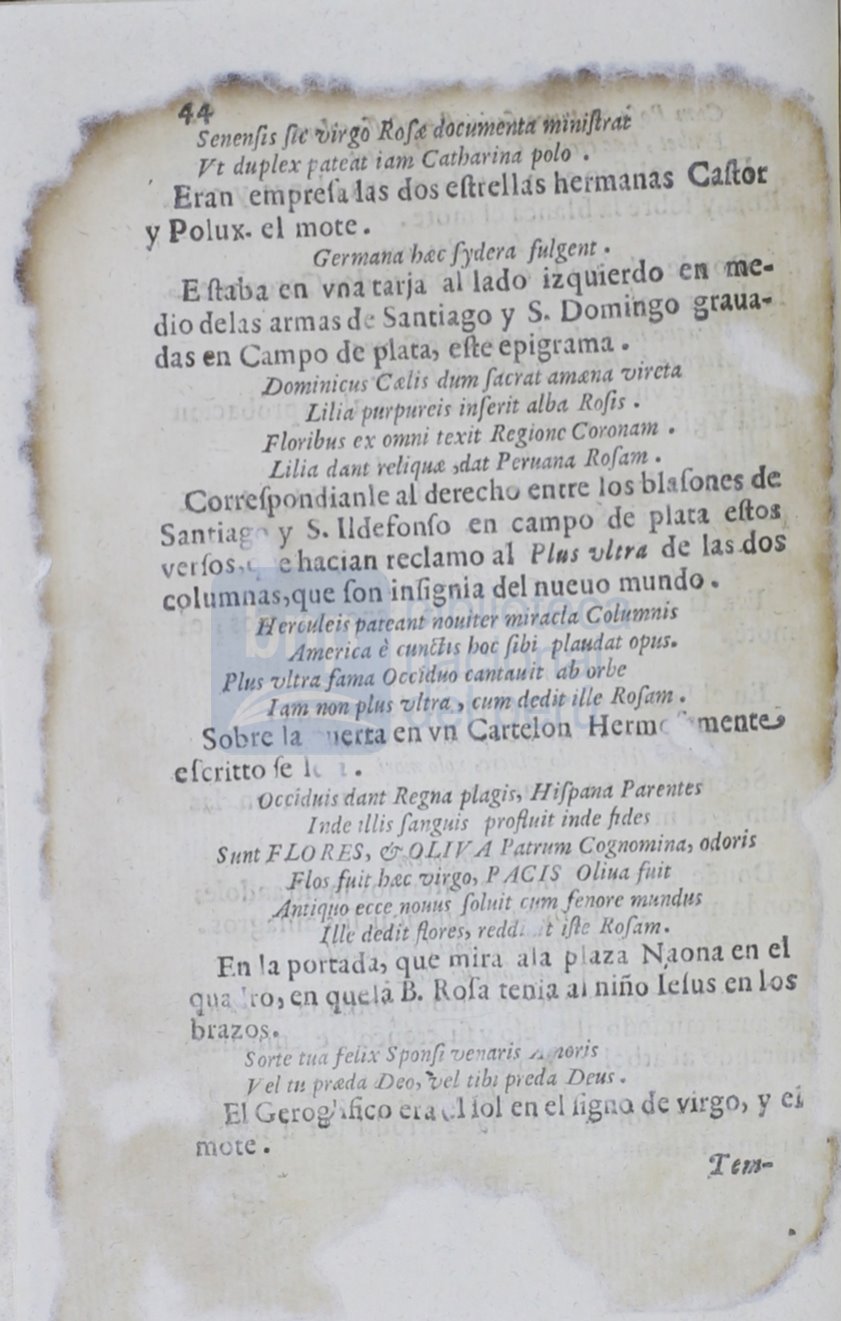 44
Senenſis ſic virgo Roſæ documenta miniſtrat
Vt duplex pateat iam Catharina polo .
Eran empreſa las dos eſtrellas hermanas Caſtor
y Polux. el mote .
Germana hæc ſydera fulgent .
Eſtaba en vna tarja al lado izquierdo en me-
dio delas armas de Santiago y S. Domingo graua-
das en Campo de plata, eſte epigrama .
Dominicus Cælis dum ſacrat amæna vireta
Lilia purpureis inſerit alba Roſis .
Floribus ex omni texit Regione Coronam .
Lilia dant reliquæ ,dat Peruana Roſam .
Correſpondianle al derecho entre los blaſones de
Santiago y S. Ildefonſo en campo de plata eſtos
verſos, que hacian reclamo al Plus vltra de las dos
columnas,que ſon inſignia del nueuo mundo .
Herculeis pateant nouiter miracla Columnis
America è cunctis hoc ſibi plaudat opus.
Plus vltra fama Occiduo cantauit ab orbe
Iam non plus vltra , cum dedit ille Roſam .
Sobre la puerta en vn Cartelon Hermoſamente
eſcritto ſe .
Occiduis dant Regna plagis, Hiſpana Parentes
Inde illis ſanguis profluit inde fides
Sunt FLORES, & OLIVA Patrum Cognomina, odoris
Flos fuit hæc virgo, PACIS Oliua fuit
Antiquo ecce nouus ſoluit cum fenore mundus
Ille dedit flores, reddit iſte Roſam.
En la portada, que mira ala plaza Naona en el
quadro, en quela B. Roſa tenia al niño Ieſus en los
brazos.
Sorte tua felix Sponſi venaris Amoris
Vel tu præda Deo, vel tibi preda Deus .
El Geroglifico era el ſol en el ſigno de virgo, y el
mote .
Tem-
biblioteca
nacional
del Perú